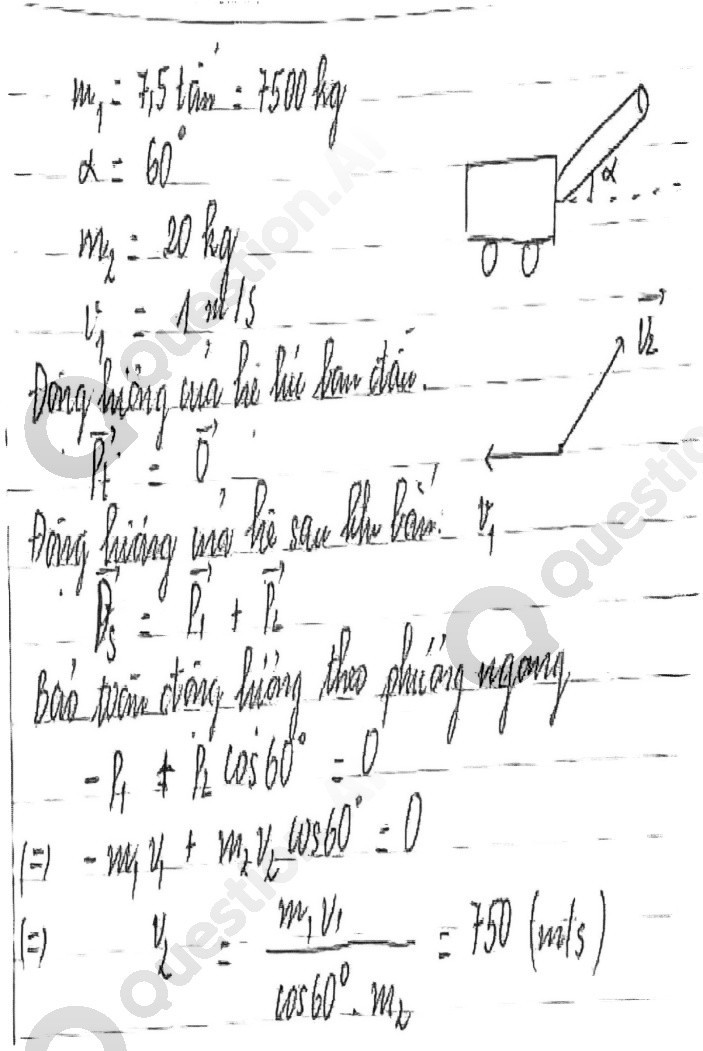 m₁ = 7,5 tấn = 7500 kg
α = 60°
α
m₂ = 20 kg
v₁ = 1 m/s
v₂
Động lượng của hệ lúc ban đầu.
Pt = 0
Động lượng của hệ sau khi bắn.
v₁
Ps = P₁ + P₂
Bảo toàn động lượng theo phương ngang
- P₁ + P₂ cos60° = 0
(=) - m₁ v₁ + m₂ v₂ cos60° = 0
(=) v₂ = m₁ v₁ / cos60° . m₂ = 750 (m/s)
Question.AI